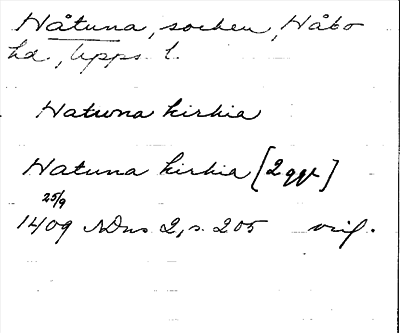 Håtuna, socken, Håbo
hd, Upps. l.
Hatwna kirkia
Hatuna kirkia [2 ggr]
25/9
1409 NDns 2, s. 205 orig.